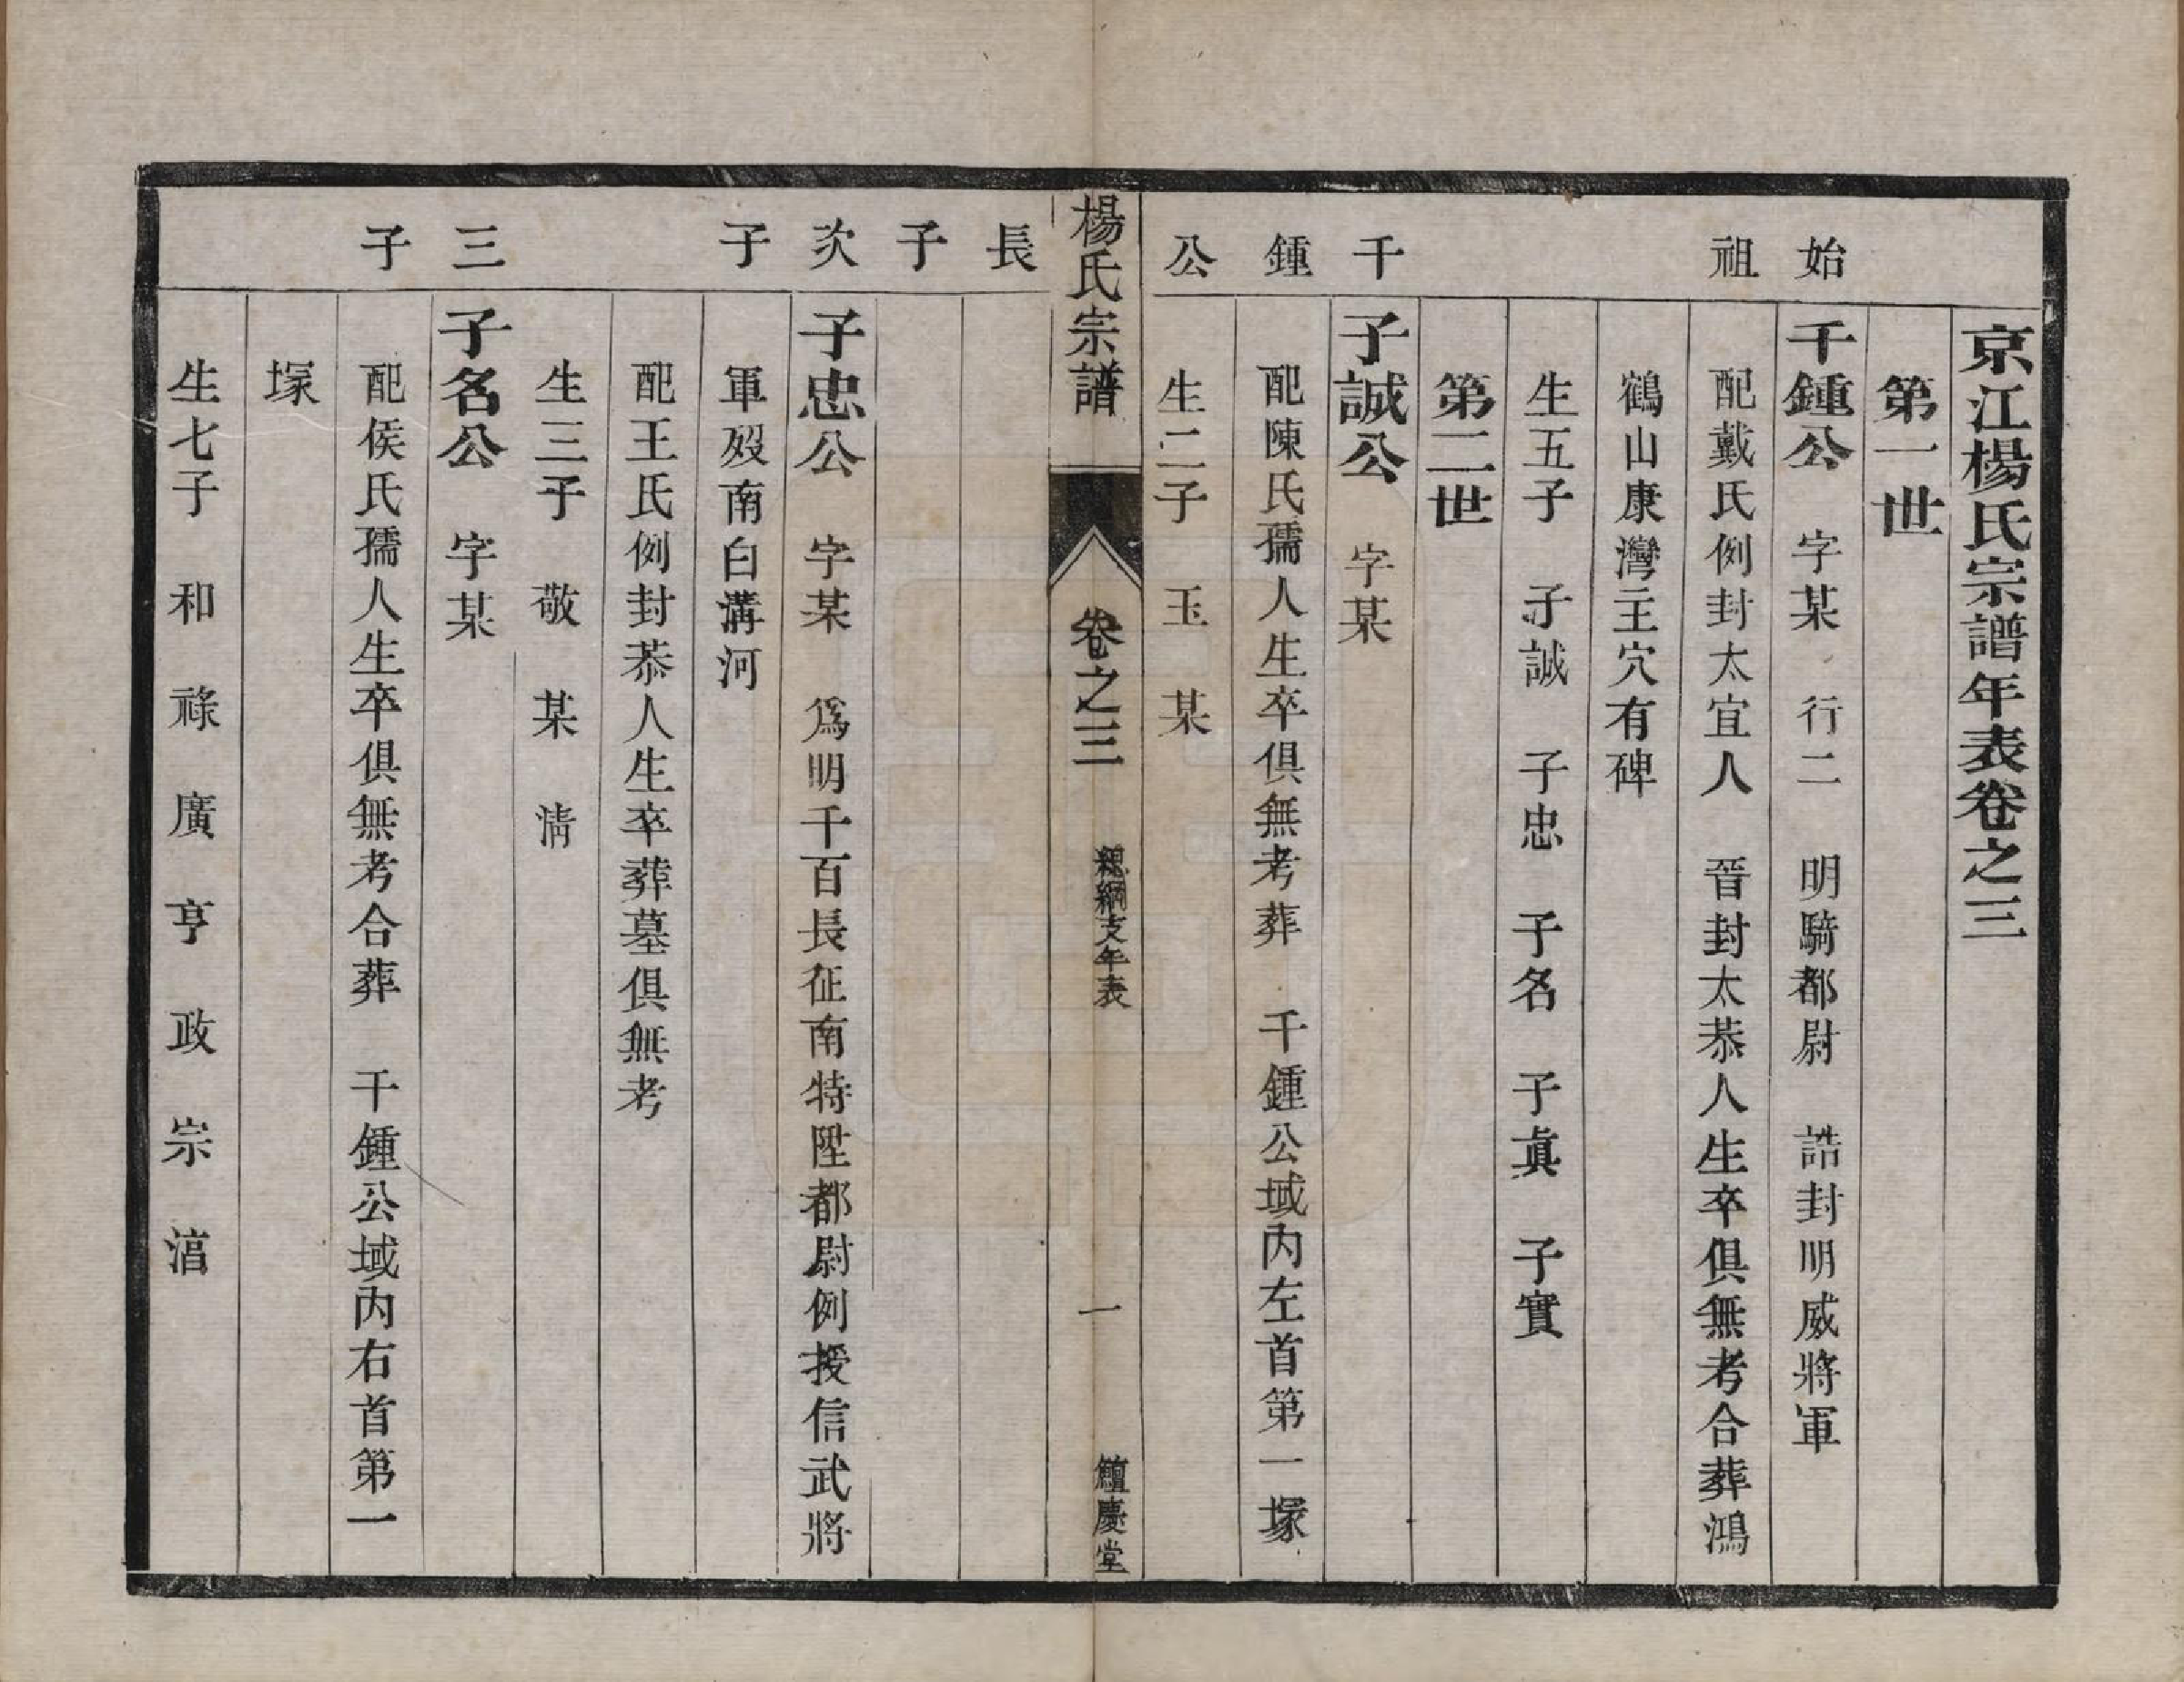 京江楊氏宗譜年表卷之三
第一世
始祖
千鍾公　字某　行二　明騎都尉　誥封明威將軍
配戴氏例封太宜人　晉封太恭人生卒俱無考合葬鴻
鶴山康灣主穴有碑
生五子　子誠　子忠　子名　子眞　子實
第二世
千鍾公長子
子誠公　字某
配陳氏孺人生卒俱無考葬　千鍾公域內左首第一塚
生二子　玉　某
楊氏宗譜　卷之三　總綱支年表　一　鱣慶堂
次子
子忠公　字某　爲明千百長征南特陞都尉例授信武將
軍歿南白溝河
配王氏例封恭人生卒葬墓俱無考
生三子　敬　某　淸
三子
子名公　字某
配侯氏孺人生卒俱無考合葬　千鍾公域內右首第一
塚
生七子　和　祿　廣　亨　政　宗　㵂